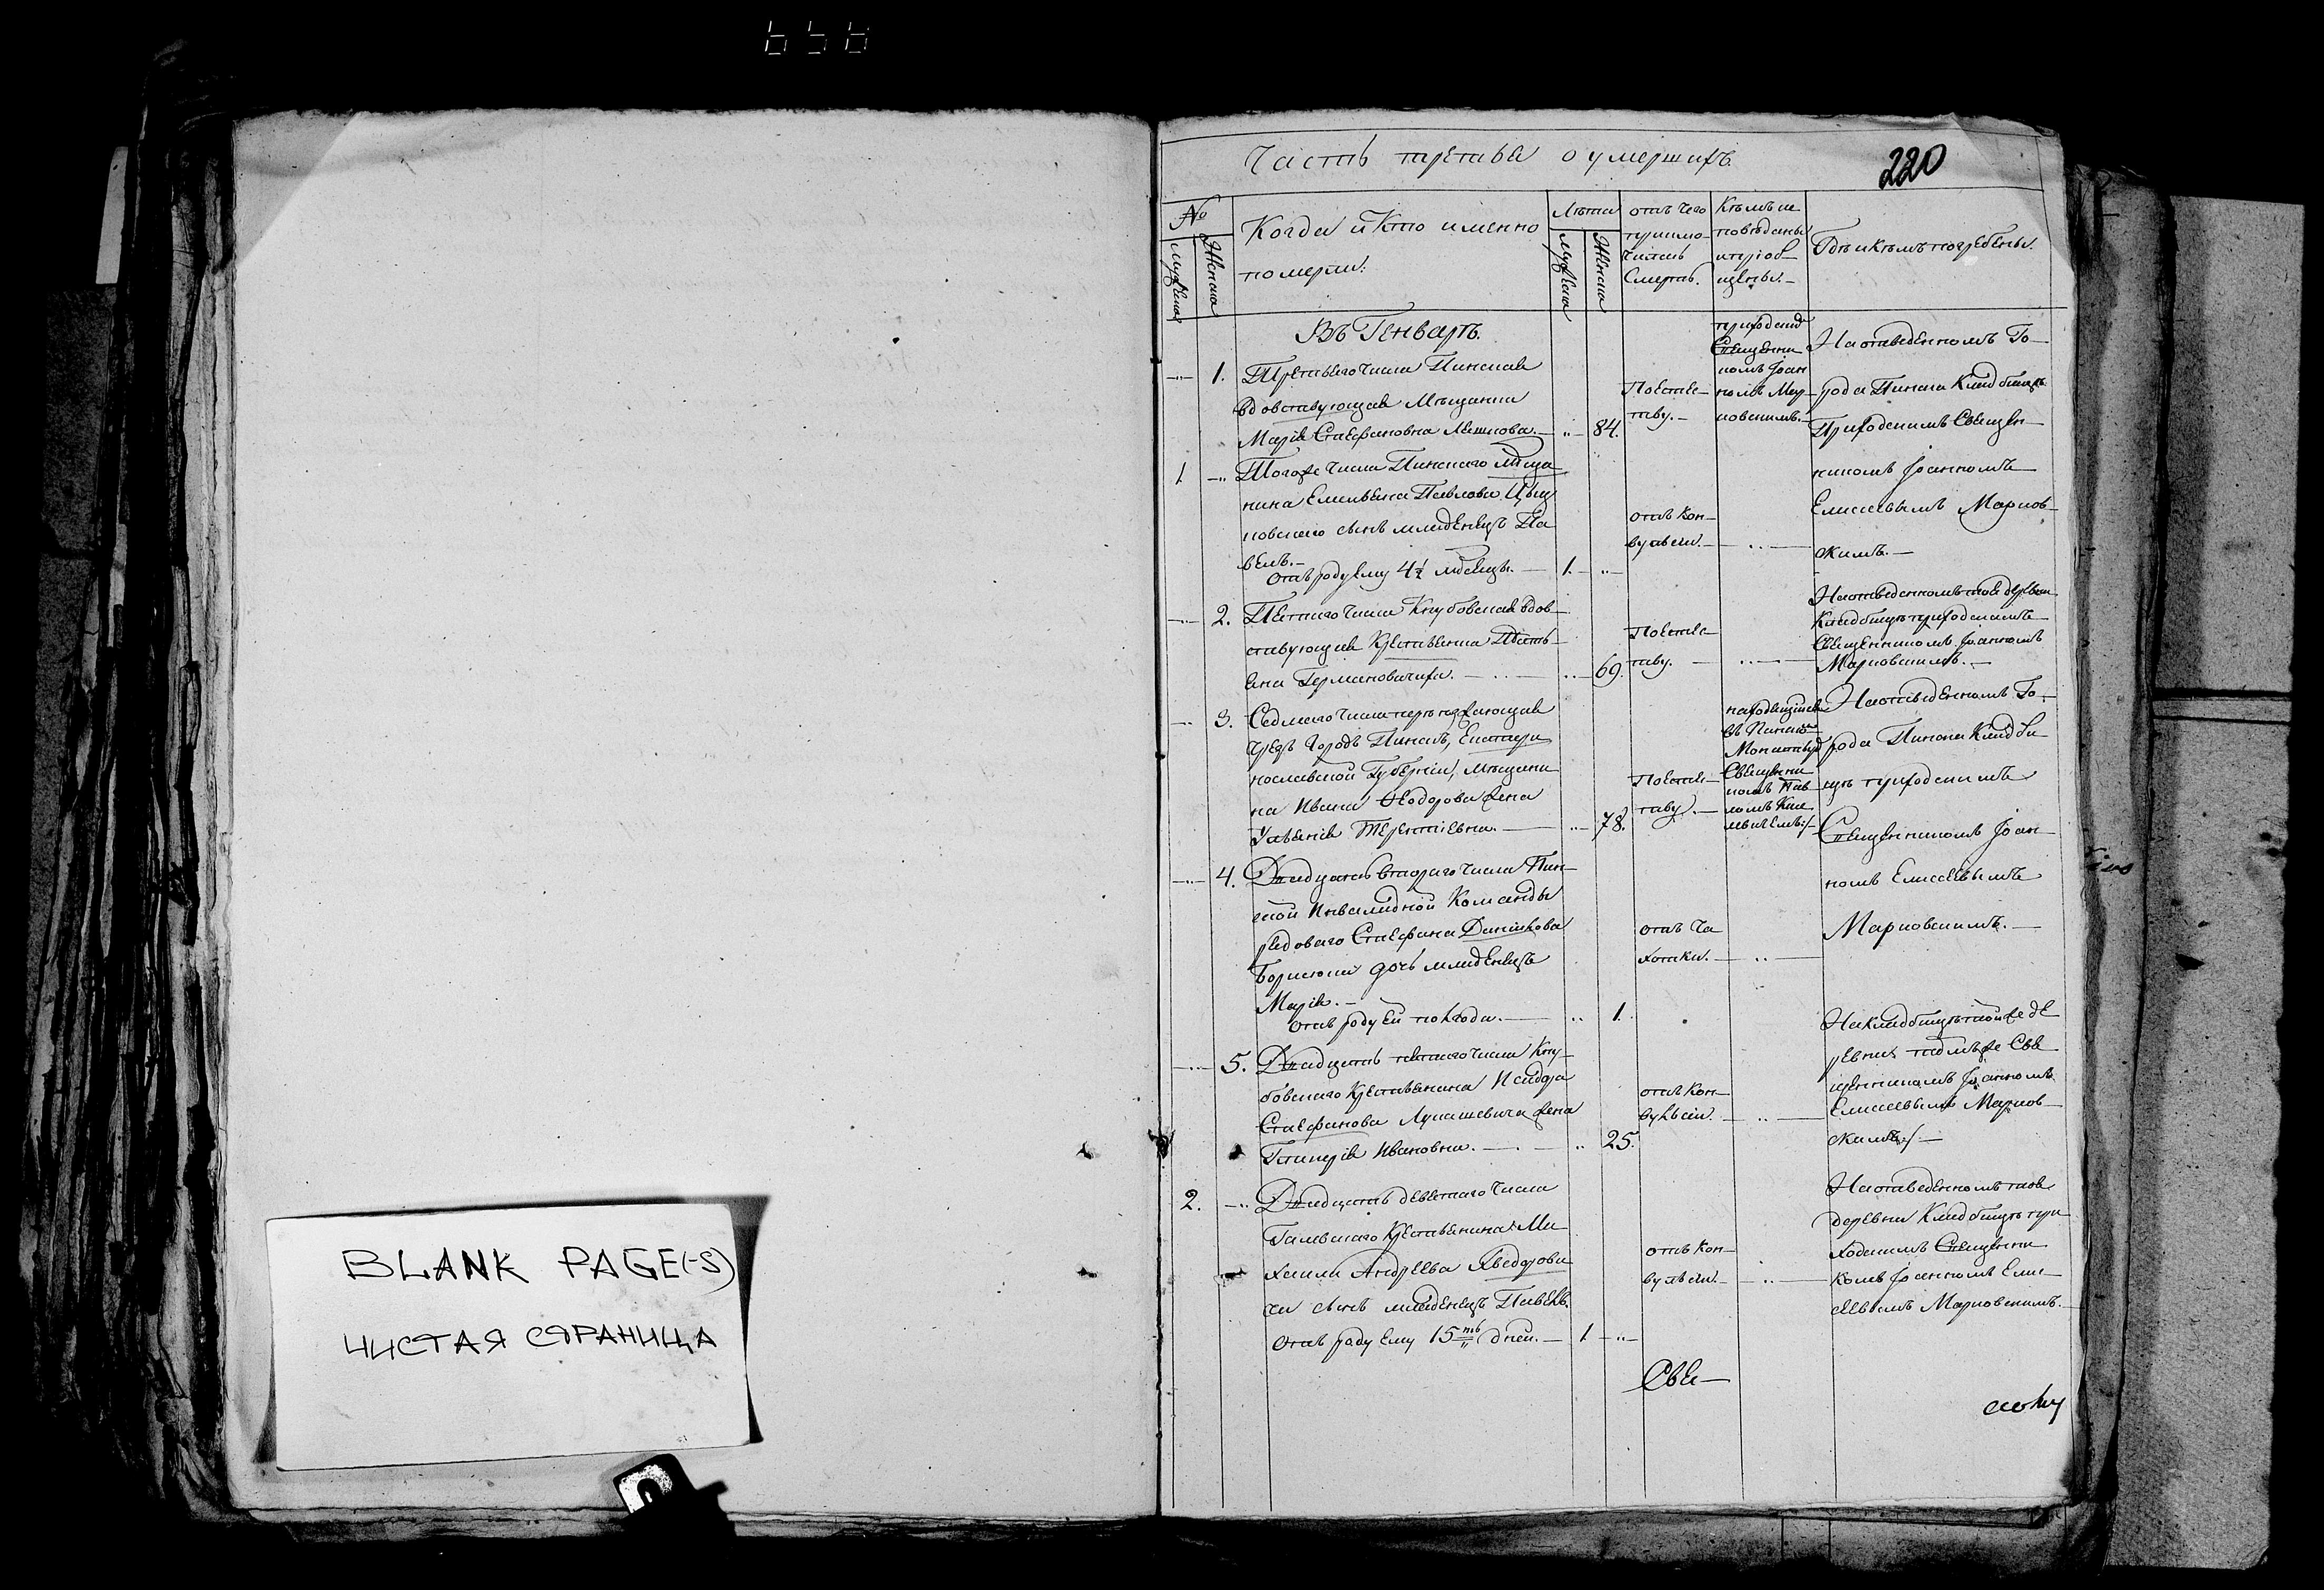 BLANK PAGE(-S)
ЧИСТАЯ СТРАНИЦА
Часть третья о умершихъ
220
№
Мужеска
Женска
Когда и Кто именно
померли:
Лѣта
Мужеска
Женска
отъ чего
приклю-
чилась
Смерть.
Кѣмъ ис
повѣданы
и приоб-
щены.-
Гдѣ и кѣмъ погребены.
Въ Генварѣ.
1. Третьяго числа Пинская
вдовствующая Мѣщанка
Марія Стефановна 84.
Поестес-
тву.-
приходскимъ
Священни
комъ Іоан
номъ Мар
новскимъ.-
На отведенномъ Го-
рода Пинска Кладбищѣ
Приходскимъ Священ-
никомъ Іоанномъ
Елисеевымъ Марнов-
скимъ.-
1 Тогоже числа Пинскаго мѣща
нина Емельяна Павлова
новскаго сынъ младенецъ Па
велъ.-
отъ роду ему 4½ мѣсяцы. 1.
отъ кон-
вульсіи.-
2. Пятаго числа вдов-
ствующая Крестьянка
Германовичиха. 69.
Поестес-
тву.-
На отведенномъ той деревни
Кладбищѣ приходскимъ
Священникомъ Іоанномъ
Марновскимъ.-
3. Седмаго числа
чрезъ Городъ Пинскъ, Екатери
нославской Губерніи, мѣщани
на Ивана Ѳеодорова жена
Терентіевна. 78.
Поестес-
тву.-
находящимся
въ Пинскомъ
Священни
комъ Пав
ломъ
На отведенномъ Го-
рода Пинска Кладби-
щѣ приходскимъ
Священникомъ Іоан-
номъ Елисеевымъ
Марновскимъ.-
4. Двадцать втораго числа Пин-
ской Инвалидной Команды
рядоваго Стефана Данилкова
дочь младенецъ
Марія.-
отъ роду ей полгода. 1.
отъ Ча
хотки.-
5. Двадцать пятаго числа Кну-
бовскаго Крестьянина Исидора
Стефанова Лукашевича жена
Гликерія Ивановна. 25.
отъ кон-
вульсіи.
На кладбищѣ той же де
ревни темъже Свя
щенникомъ Іоанномъ
Елисеевымъ Марнов-
скимъ
2. Двадцать девятаго числа
Крестьянина Ми
хаила Андреева Яведорови
ча сынъ младенецъ Павелъ.
Отъ роду ему 15ть дней.- 1
отъ кон-
вульсіи.-
На отведенномъ тоя
деревни Кладбищѣ при
ходскимъ Священни
комъ Іоанномъ Ели-
сеевымъ Марновскимъ.
Свя-